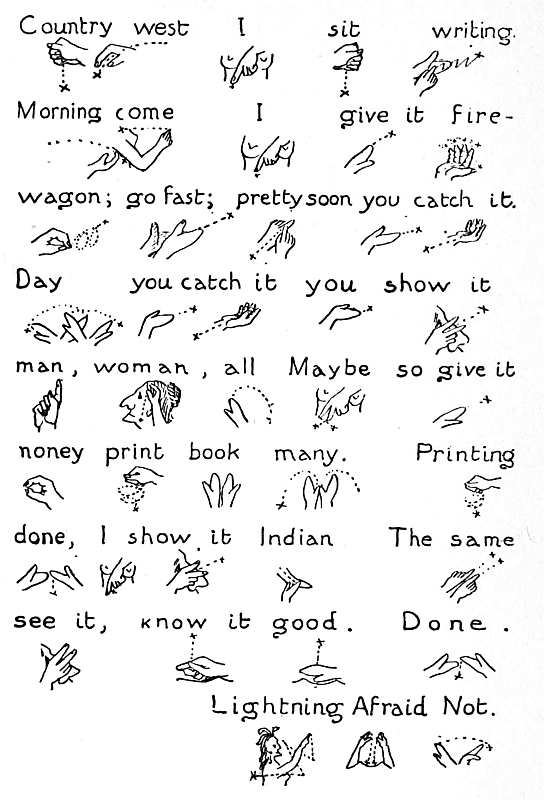 Country west I sit writing.
Morning come I give it fire-
wagon; go fast; pretty soon you catch it.
Day you catch it you show it
man, woman, all Maybe so give it
noney print book many. Printing
done, I show it Indian The same
see it, know it good. Done.
Lightning Afraid Not.